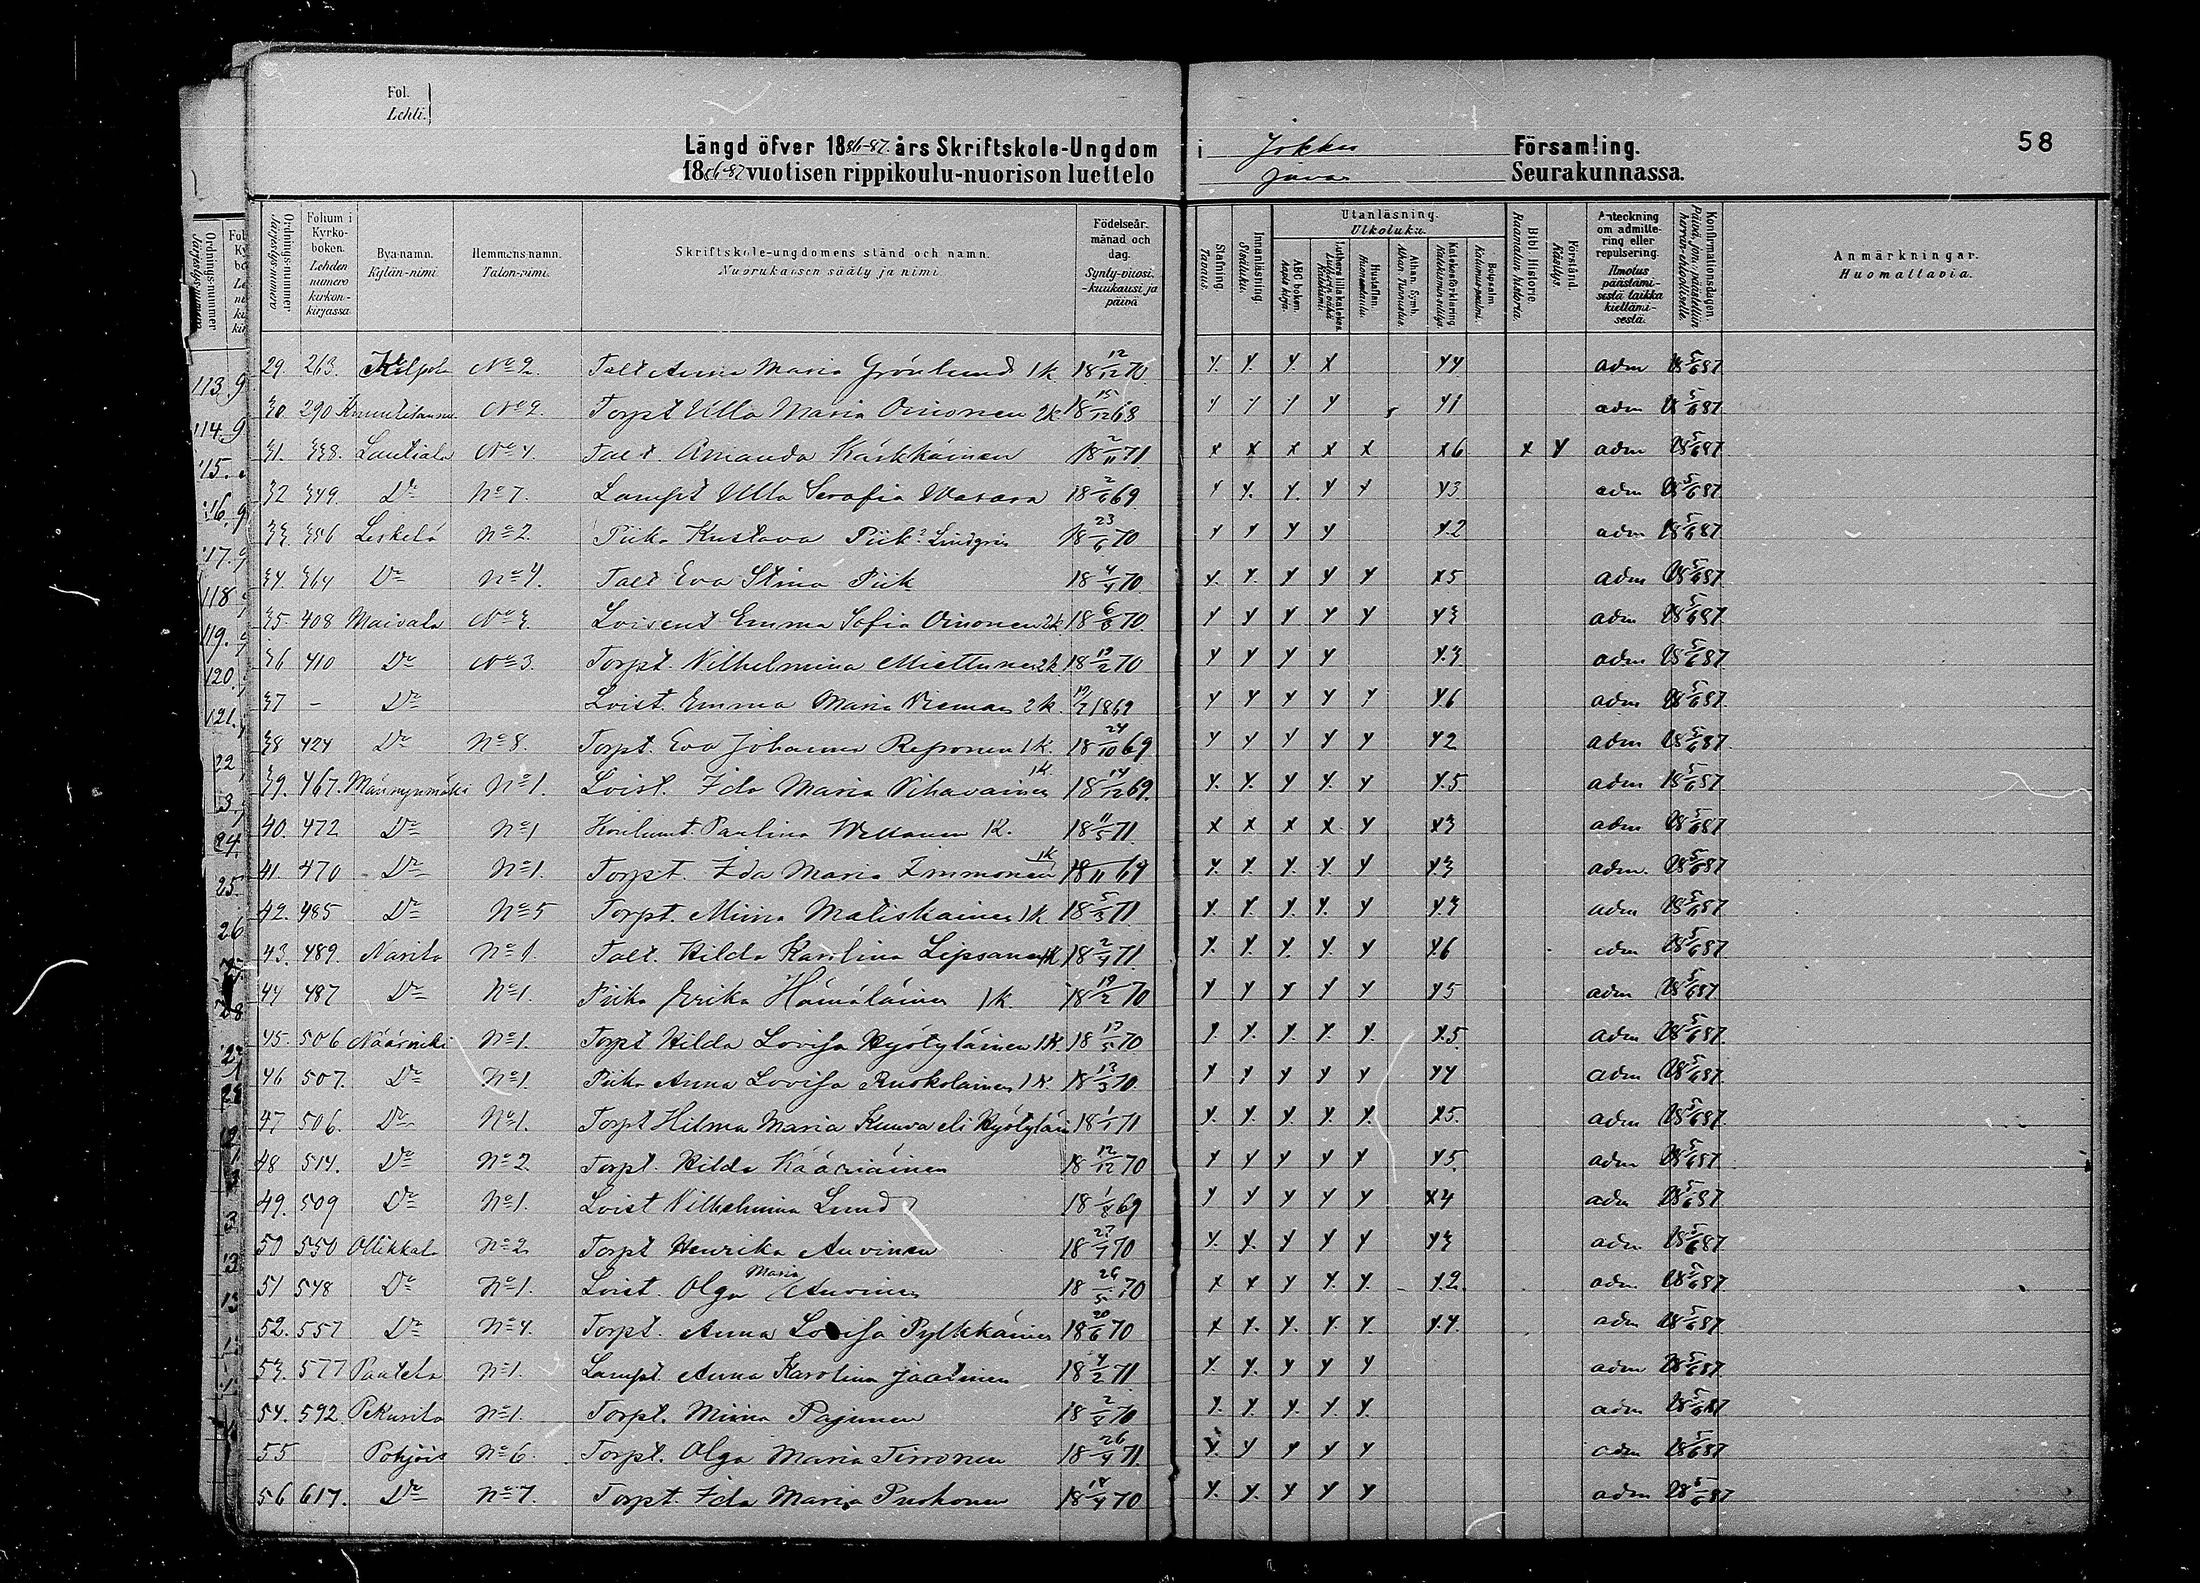 Fol.
Lehti.
Längd öfver 1886-87 års Skriftskole-Ungdom i Jokkas Församling. 58
1886-87 vuotisen rippikoulu-nuorison luettelo Juvas Seurakunnassa.
Ordningsnummer Järjestysnumero
Folium i Kyrkoboken. Lehden numero kirkonkirjassa
Bya-namn. Kylän-nimi
Hemmensnamn. Talon-nimi.
Skriftskole-ungdomens stånd och namn. Nuorukaisen sääty ja nimi
Födelseår, månad och dag. Synty-vuosi, -kuukausi ja päivä
Stafning. Tavaus
Innanläsning. Sisäluku.
Utanläsning. Ulkoluku.
ABC boken. Aapis kirja.
Luthers lilla katekes. Lutheruen vähä katkismus
Hustaflan. Huoneentaulu.
Athan. Symb. Athan. Tunnustus.
Katekesförklaring Katekismin selitys
Botpsalm. Katumus-psalmi.
Bibl. Historie. Raamatun historia.
Förstånd. Käsitys.
Anteckning om admittering eller repulsering. Ilmotus päästämisestä taikka kieltämisestä.
Konfirmationsdagen. Päivä, jona päästettiin herran-ehtoolliselle.
Anmärkningar. Huomattavia.
29. 263. No 2. Talt Anna Maria Grönlund 1k 18 12/12 70 y. y. y. x y4 adm 5/6 87
30. 290 No 2. Torpt Ulla Maria Oinonen 2k 18 15/12 68 y y y y y1 adm 5/6 87
31. 338. Lautiala No 4. Talt. Amanda Kärkkäinen 18 2/11 71 x x x x x x6 x y adm 5/6 87
32 349. Do No 7. Lampt Ulla Serafia 18 2/6 69 y y. y. y y y3 adm 5/6 87
33. 356 Leskelä No 2. Piika Kustava Piik? Lindgrén 18 23/6 70 y y y y y.2 adm 5/6 87
34. 364 Do No 4. Talt Eva Stina Piik 18 4/4 70 y. y. y y y x5 adm 5/6 87
35. 408 Maivala No 3. Loisent Emma Sofia Oinonen 2k. 18 6/8 70. y y y y y y3 adm 5/6 87
36 410 Do No 3. Torpt. Vilhelmina Miettunen 2k. 18 19/2 70 y y y y y.3 adm 5/6 87
37 - Do Loist. Emma Maria 2k. 1869 y y y y y y6 adm 5/6 87
38 424 Do No 8. Torpt. Eva Johanna Reponen 1k. 18 24/10 69 y y y y y y2 adm 5/6 87.
39. 467. Männynmäki No 1. Loist. Ida Maria Vihavainen 1k. 18 14/12 69. y. y. y. y. y y.5 adm 5/6 87
40. 472 Do No 1 Paulina 1k. 18 11/5 71. x x x x. y x3 adm 5/6 87
41. 470 Do No 1. Torpt. Ida Maria Immonen 1k 18 /11 69 y. y. y. y y y3 adm. 5/6 87
42. 485 Do No 5 Torpt. Miina Matiskainen 1k. 18 5/3 71 y. y. y. y. y y.3 adm 5/6 87
43. 489. Narila No 1. Talt. Hilda Karolina Lipsanen 1k 18 2/4 71. y. y. y. y y y.6 adm 5/6 87
44 487 Do No 1. Piika Erika Hämäläinen 1k. 18 19/2 70 y y y y y y5 adm 5/6 87
45. 506 Näärinki No 1. Torpt Hilda Lovisa Hyötyläinen 1k. 18 13/5 70 y. y. y. y. y. y.5. adm 5/6 87.
46 507. Do No 1. Piika Anna Lovisa Ruokolainen 1k. 18 13/3 70. y y y y y y4 adm 5/6 87.
47 506. Do No 1. Torpt Hilma Maria Kuuva eli Hyötyläin 18 1/1 71 y. y. y. y. y. y.5. adm 5/6 87
48 514. Do No 2 Torpt. Hilda Kääriäinen 18 12/12 70 y y y y y y5. adm 5/6 87
49. 509 Do No 1. Loist Vilhelmina Lund 18 1/8 69 y y y y y x4 adm 5/6 87
50 550 Ollikkala No 2. Torpt Henrika Auvinen 18 27/7 70 y. y. y y y y3 adm 5/6 87
51 548 Do No 1. Loist. Olga Maria Auvinen 18 26/5 70 x x y y. y. y.2. adm 5/6 87.
52. 557 Do No 4. Torpt. Anna Lovisa Pylkkäinen 18 20/6 70 x y. y. y. y. y.4. adm 5/6 87.
53. 577 Paatela No 1. Lampt. Anna Karolina Jaatinen 18 4/2 71 y. y. y y y adm 5/6 87.
54. 592 Pekurila No 1. Torpt. Miina Pajunen 18 2/8 70 y. y. y. y. y. adm 5/6 87
55 Pohjois No 6. Torpt. Olga Maria Tirronen 18 26/4 71. y. y y y y adm 5/6 87
56 617. Do No 7. Torpt. Ida Maria Puuhonen 18 18/4 70 y. y. y y y adm 5/6 87